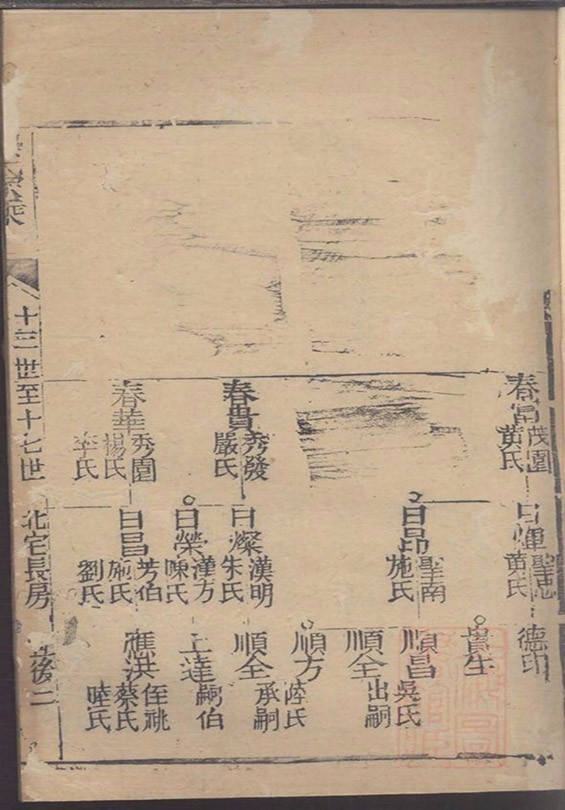 春富
茂園
黄氏
春貴
秀發
嚴氏
春華
秀園
楊氏
李氏
黄氏
日昂
聖南
施氏
日燦
漢明
朱氏
日榮
漢方
陳氏
日昌
芳伯
施氏
劉氏
德印
貴生
順昌
吳氏
順全
出嗣
順方
陸氏
順全
承嗣
上達
嗣伯
應洪
侄祧
蔡氏
陸氏
十三世至十七世
北宅長房
後二